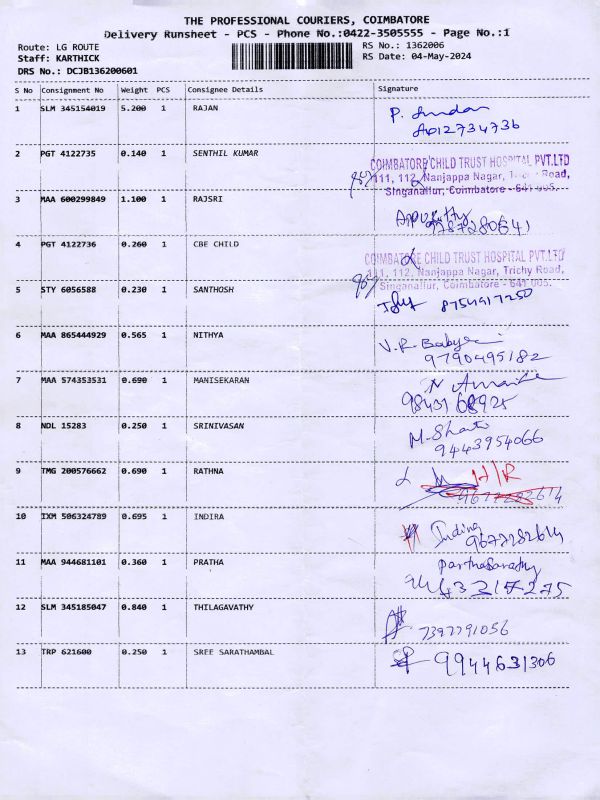 THE PROFESSIONAL COURIERS, COIMBATORE
Delivery Runsheet - PCS - Phone No.:0422-3505555 - Page No.:1
Route: LG ROUTE
RS No.: 1362006
Staff: KARTHICK
RS Date: 04-May-2024
DRS No.: DCJB136200601
S No Consignment No Weight PCS Consignee Details Signature
1 SLM 345154019 5.200 1 RAJAN P.
2 PGT 4122735 0.140 1 SENTHIL KUMAR
COIMBATORE CHILD TRUST HOSPITAL PVT.LTD
111, 112, Nanjappa Nagar, Trichy Road,
Singanallur, Coimbatore - 641 005.
3 MAA 600299849 1.100 1 RAJSRI
9787280641
4 PGT 4122736 0.260 1 CBE CHILD
COIMBATORE CHILD TRUST HOSPITAL PVT.LTD
111, 112, Nanjappa Nagar, Trichy Road,
Singanallur, Coimbatore - 641 005.
5 STY 6056588 0.230 1 SANTHOSH
8754917250
6 MAA 865444929 0.565 1 NITHYA V.R.
9790495182
7 MAA 574353531 0.690 1 MANISEKARAN
9843168925
8 NDL 15283 0.250 1 SRINIVASAN
9443954066
9 TMG 200576662 0.690 1 RATHNA H/R
9677282614
10 IXM 506324789 0.695 1 INDIRA Indira
9677282614
11 MAA 944681101 0.360 1 PRATHA Parthasarathy
12 SLM 345185047 0.840 1 THILAGAVATHY
7397791056
13 TRP 621600 0.250 1 SREE SARATHAMBAL 9944631306